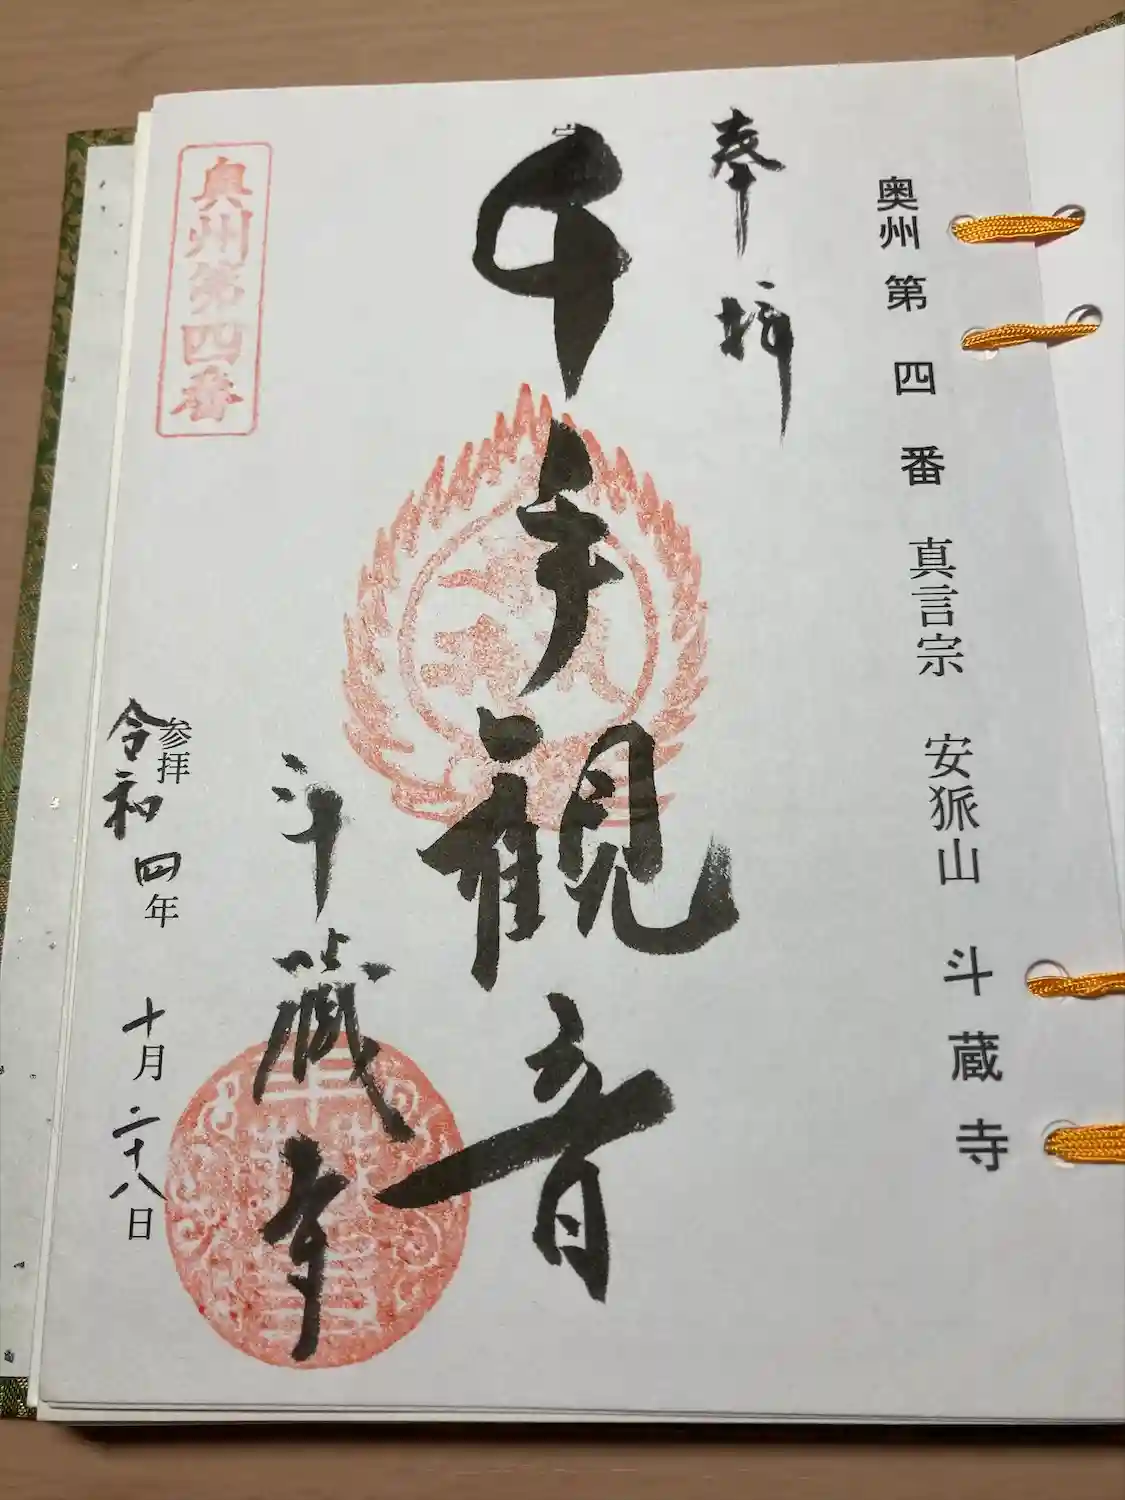 奥州第四番 真言宗 安狐山 斗蔵寺
奉拝
千手観音
斗蔵寺
奥州第四番
参拝
令和四年 十月二十八日